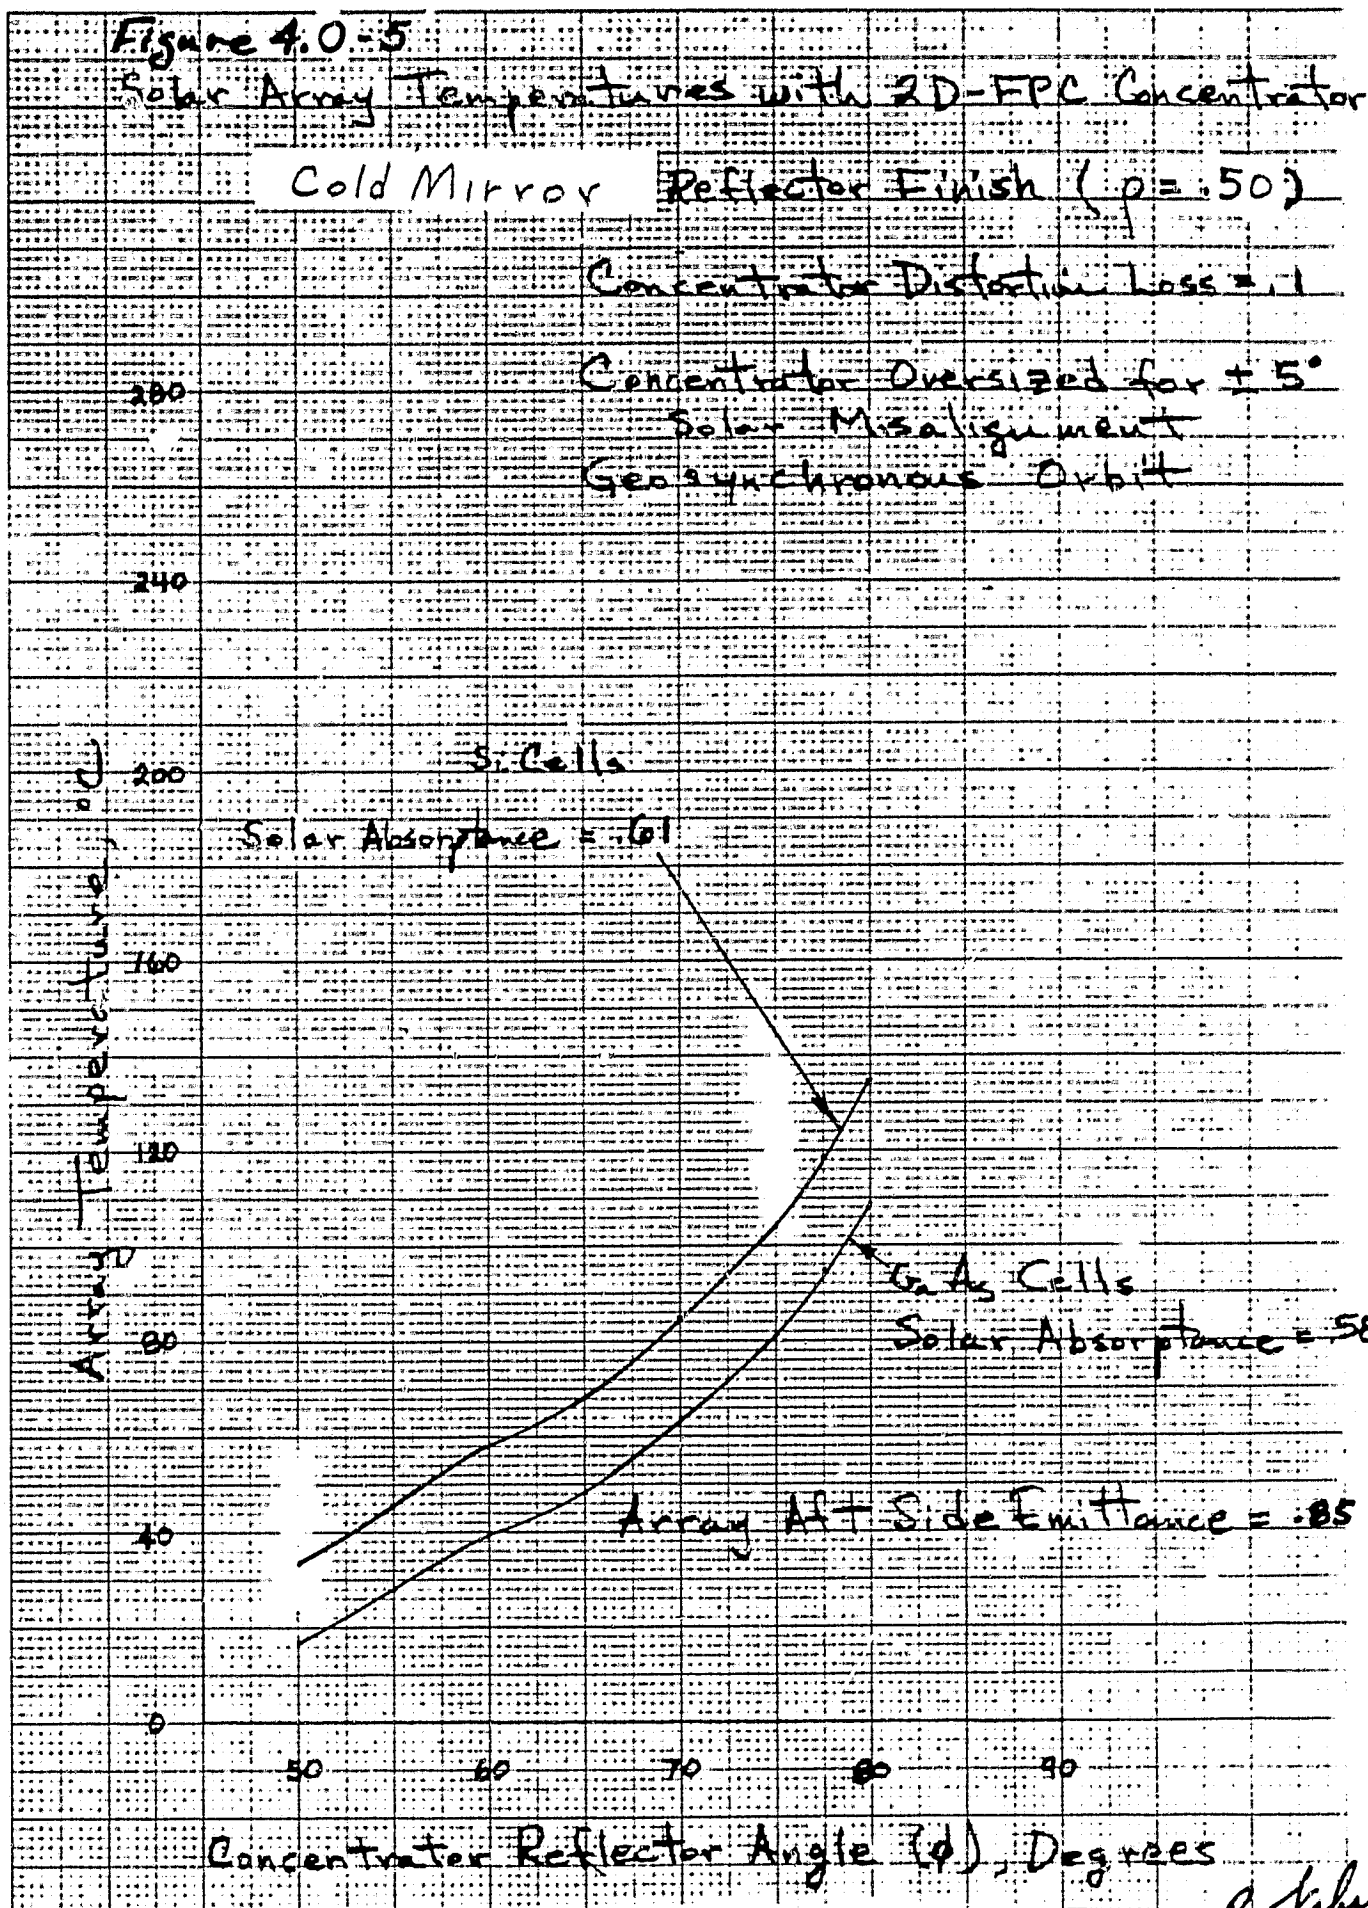 Figure 4.0-5
Solar Array Temperatures with 2D-FPC Concentrator
Cold Mirror Reflector Finish (ρ = .50)
Concentrator Distortion Loss = .1
Concentrator Oversized for ± 5°
Solar Misalignment
Geosynchronous Orbit
280
240
Si Cells
200
Solar Absorptance = .61
160
120
Ga As Cells
80
Solar Absorptance = .58
Array Aft Side Emittance = .85
40
0
Array Temperature, °C
50 60 70 80 90
Concentrator Reflector Angle (φ), Degrees